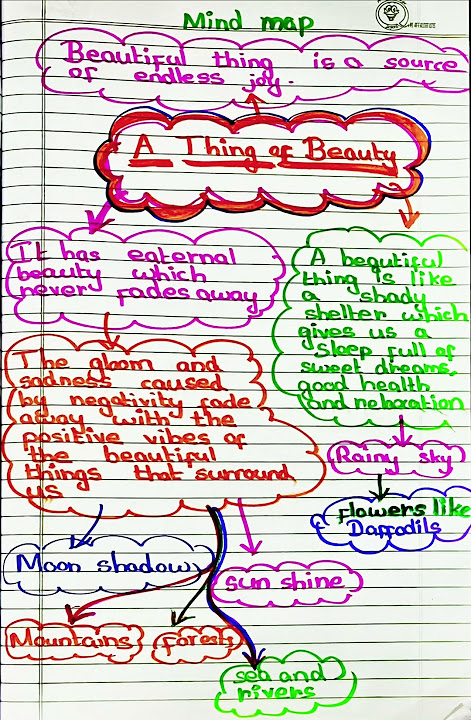 Mind map
Beautiful thing is a source
of endless joy.
A Thing of Beauty
It has eaternal
beauty which
never fades away
A beautiful
thing is like
a shady
shelter which
gives us a
sleep full of
sweet dreams,
good health
and relaxation
The gloom and
sadness caused
by negativity fade
away with the
positive vibes of
the beautiful
things that surround
us
Rainy sky
flowers like
Daffodils
Moon shadow
sun shine
Mountains
forests
sea and
rivers